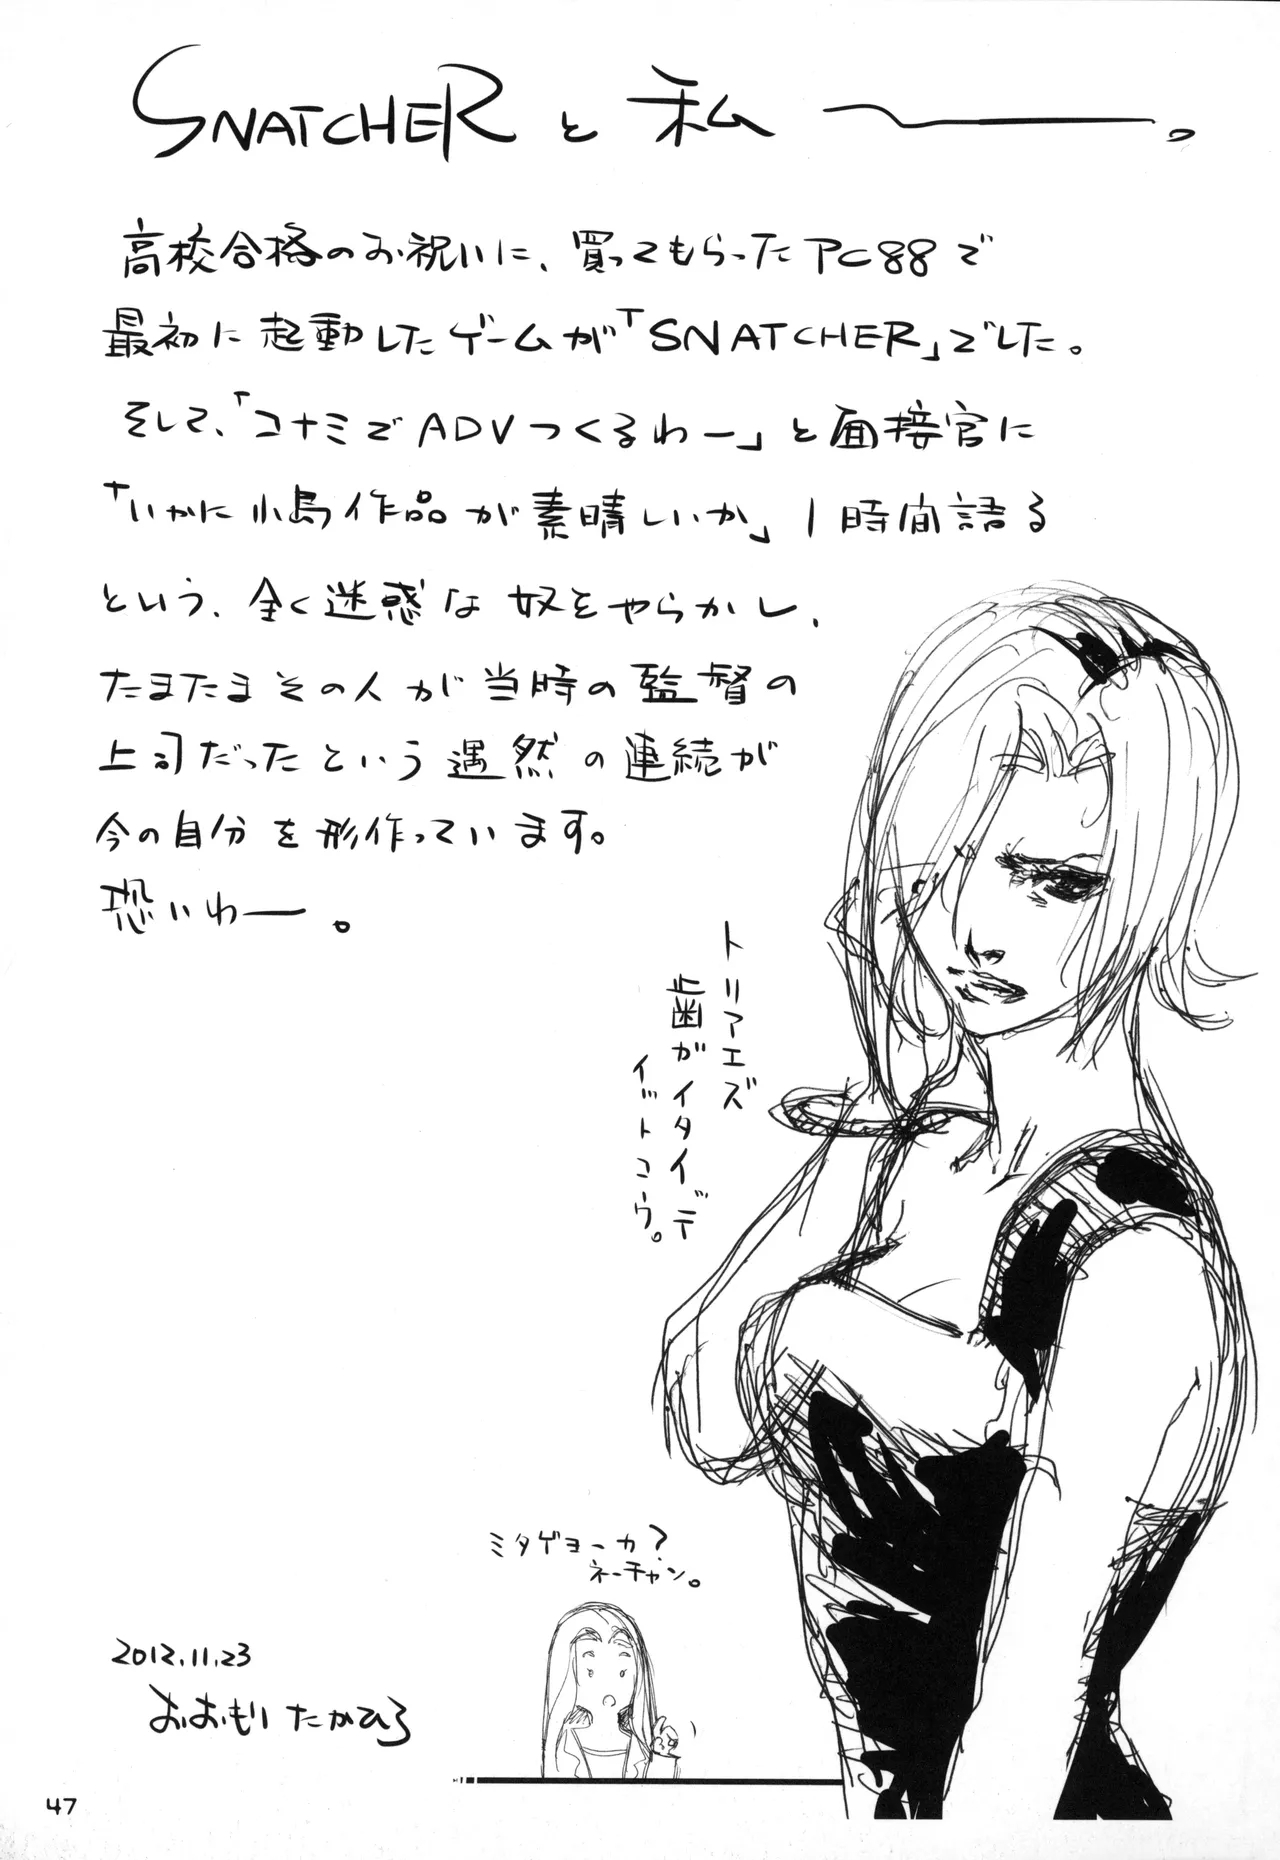 SNATCHERと私―――。
高校合格のお祝いに、買ってもらったPC88で
最初に起動したゲームが「SNATCHER」でした。
そして、「コナミでADVつくるわー」と面接官に
「いかに小島作品が素晴しいか」1時間語る
という、全く迷惑な奴をやらかし、
たまたまその人が当時の監督の
上司だったという遇然の連続が
今の自分を形作っています。
恐いわー。
トリアエズ
歯がイタイデ
イットコウ。
ミタゲヨーカ?
ネーチャン。
2012.11.23
おおもりたかひろ
47